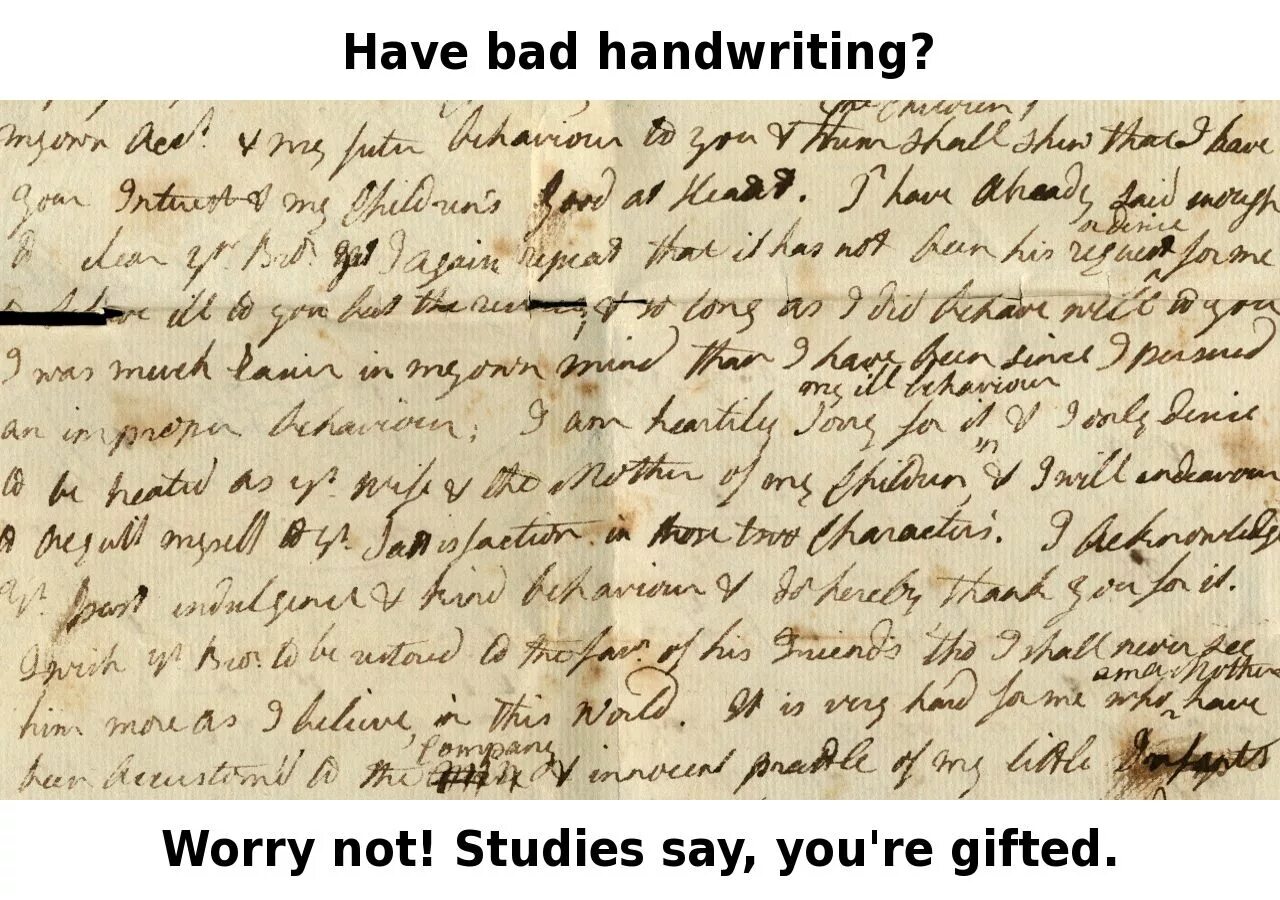 Have bad handwriting?
the Children
my own Acct. & my futur behaviour to you & them shall shew that I have
your Interest & my Children's Good at Heart. I have Already said enough
a desire
to clear yr. Bror. yet I again repeat that it has not been his request for me
to behave ill to you but the & so long as I did behave well to you
I was much easier in my own mind than I have been since I persued
my ill behaviour
an improper behaviour; I am heartily sorry for it & I only desire
in
to be treated as yr. Wife & the Mother of my Children, & I will endeavour
to Acquitt myself to yr. Satisfaction in those two Characters. I Acknowledge
yr. past indulgence & kind behaviour & do hereby thank you for it.
I wish yr Bror. to be restored to the favr. of his Friends tho I shall never see
am a Mother
him more as I believe, in this World. It is very hard for me who have
Company
been Accustom'd to the & innocent prattle of my little Infants
Worry not! Studies say, you're gifted.